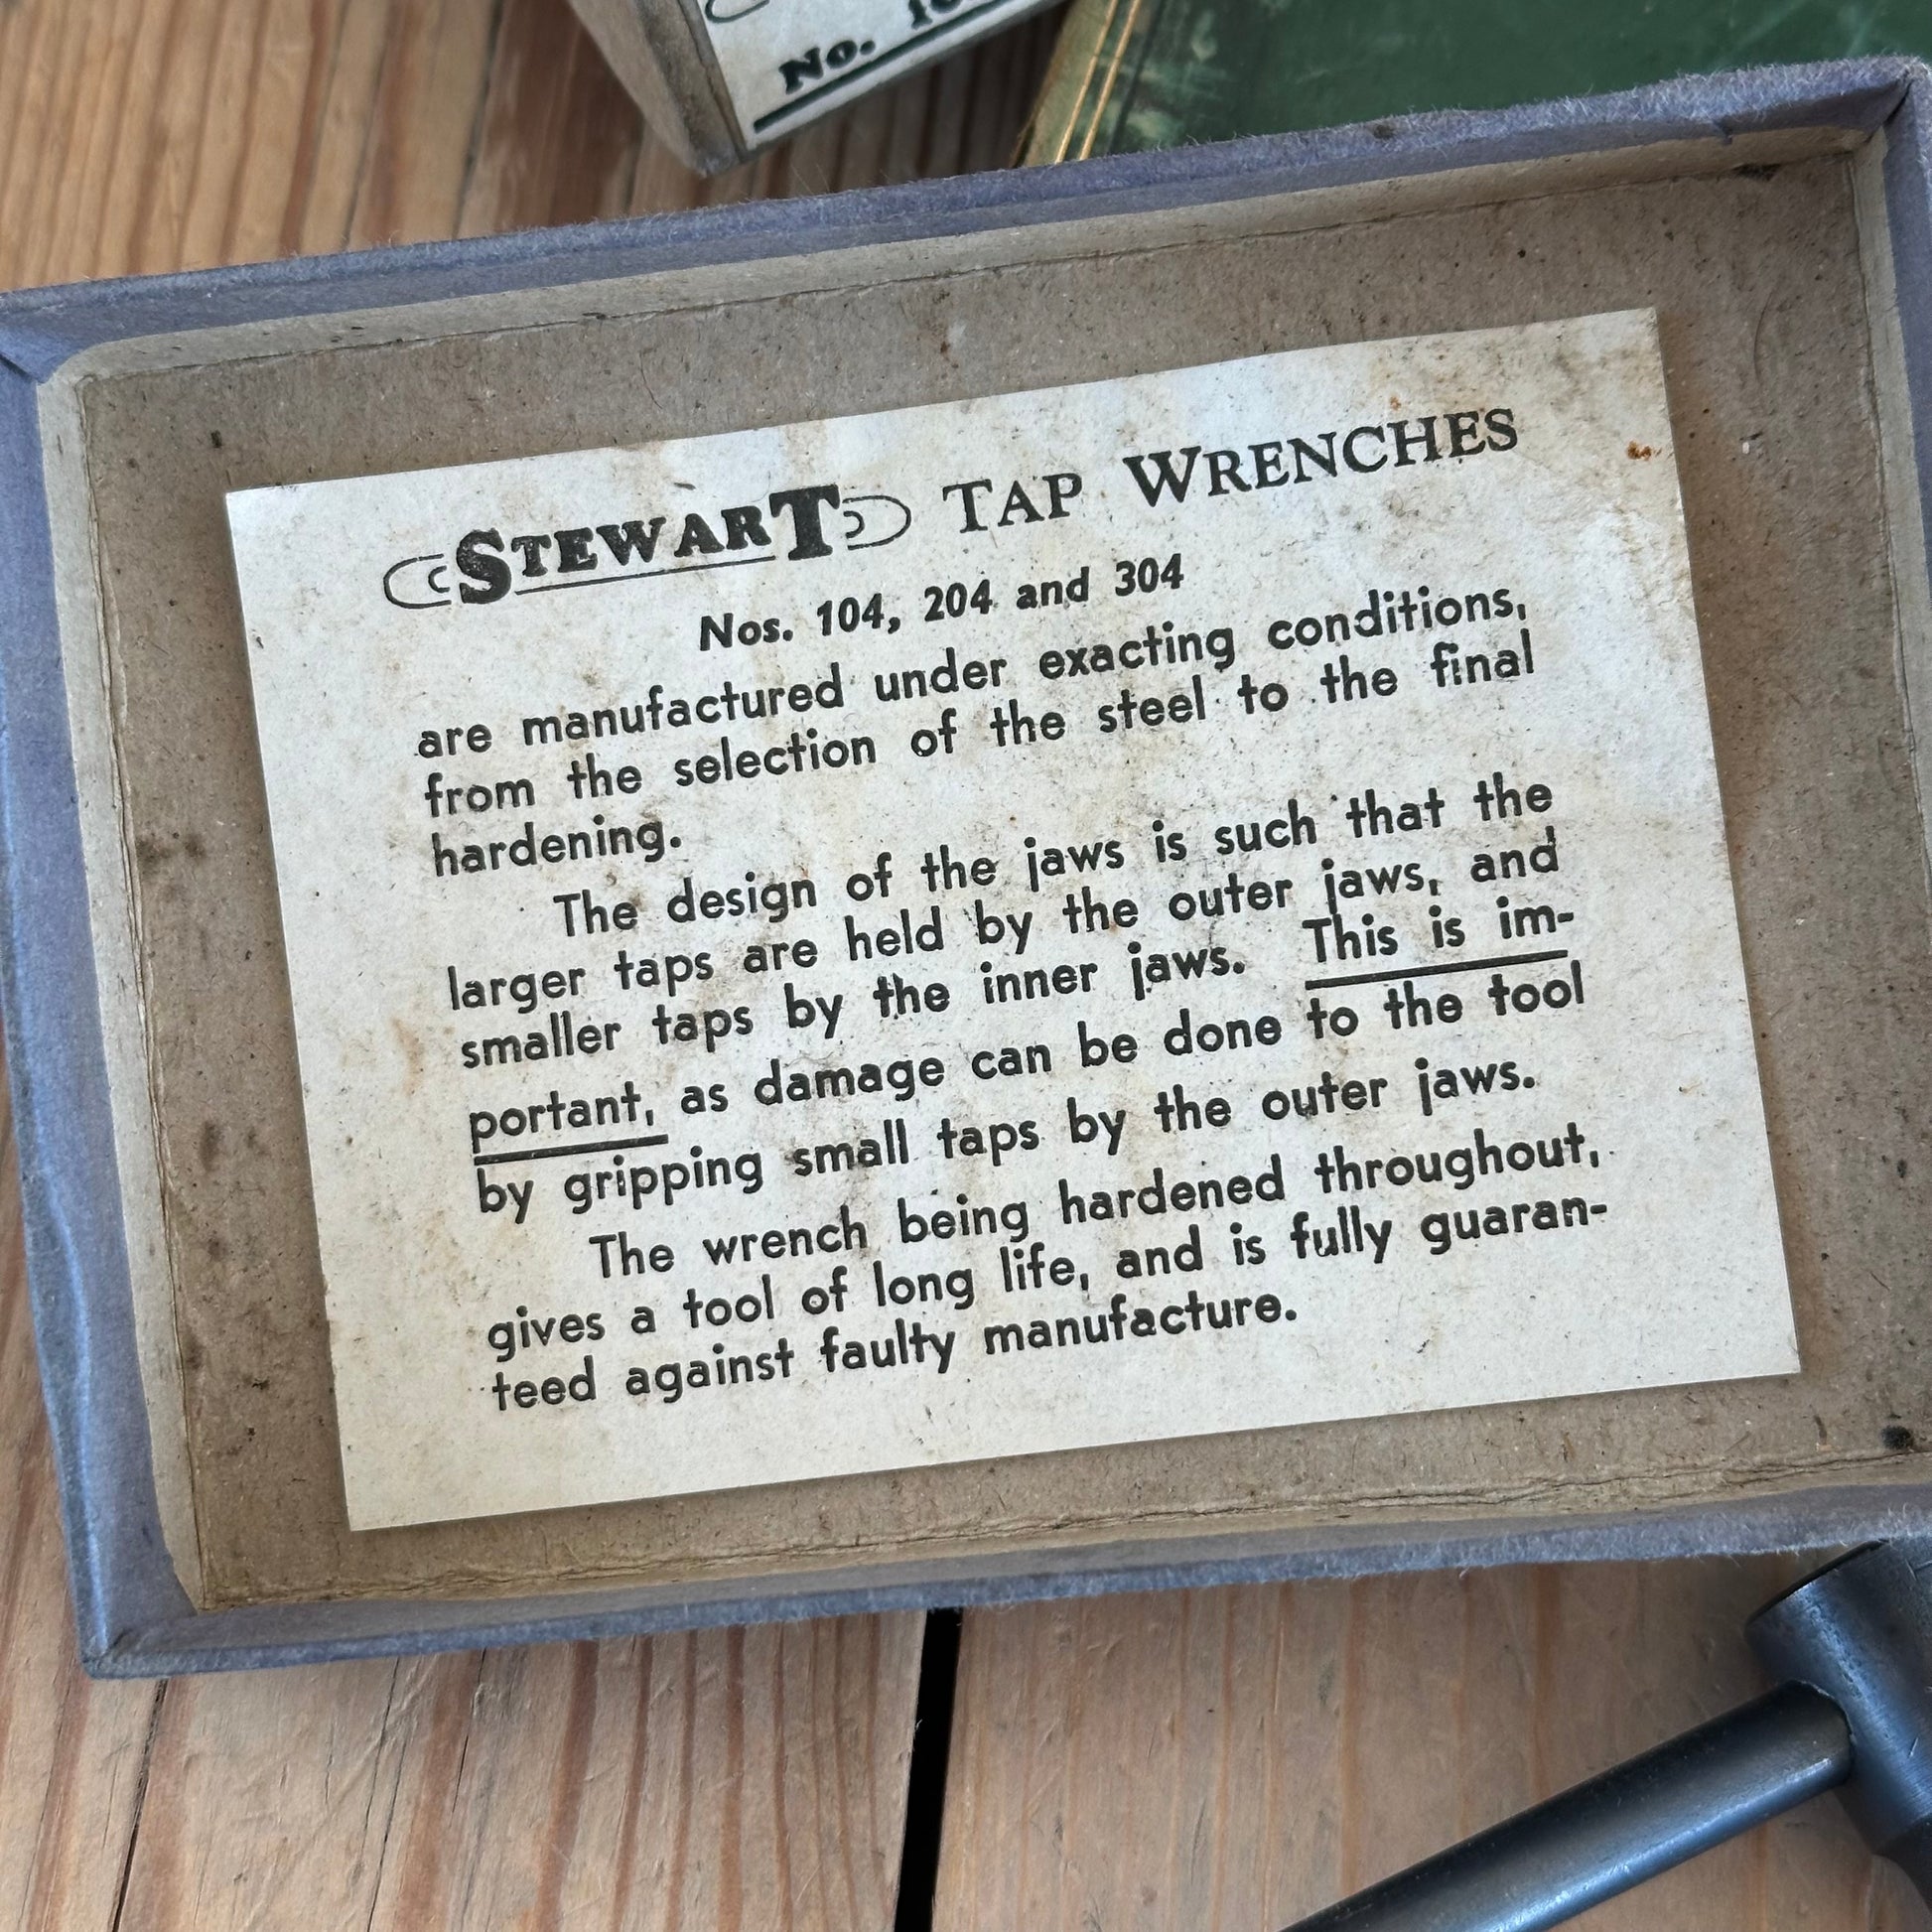 No.
STEWART TAP WRENCHES
Nos. 104, 204 and 304
are manufactured under exacting conditions,
from the selection of the steel to the final
hardening.
The design of the jaws is such that the
larger taps are held by the outer jaws, and
smaller taps by the inner jaws. This is im-
portant, as damage can be done to the tool
by gripping small taps by the outer jaws.
The wrench being hardened throughout,
gives a tool of long life, and is fully guaran-
teed against faulty manufacture.